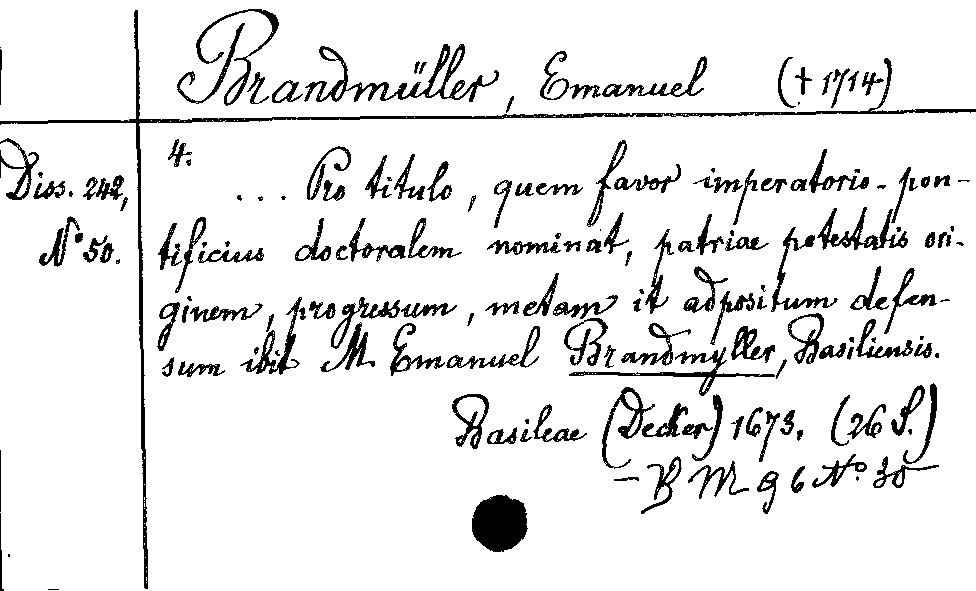 Brandmüller, Emanuel († 1714)
4.
Diss. 242, ... Pro titulo, quem favor imperatorio-pon-
No 50. tificius doctoralem nominat, patriae potestatis ori-
ginem, progressum, metam it adpositum defen-
sum ibit M. Emanuel Brandmyller, Basiliensis.
Basileae (Decker) 1673. (26 S.)
– B M g 6 No 30